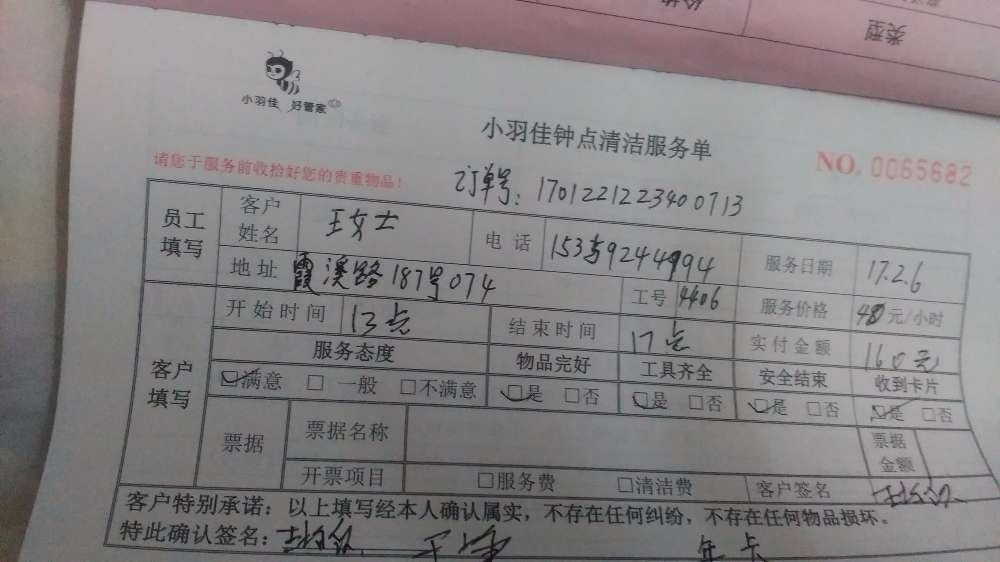 类型
小羽佳 好管家
小羽佳钟点清洁服务单
NO. 0065682
请您于服务前收拾好您的贵重物品!
订单号: 1701221223400713
员工填写 客户姓名 王女士 电话 服务日期 17.2.6
地址 霞溪路187号074 工号 4406 服务价格 40元/小时
客户填写 开始时间 13点 结束时间 17点 实付金额 160元
服务态度 物品完好 工具齐全 安全结束 收到卡片
☑满意 □一般 □不满意 ☑是 □否 ☑是 □否 ☑是 □否 ☑是 □否
票据 票据名称 票据金额
开票项目 □服务费 □清洁费 客户签名
客户特别承诺:以上填写经本人确认属实,不存在任何纠纷,不存在任何物品损坏。
特此确认签名: 年卡